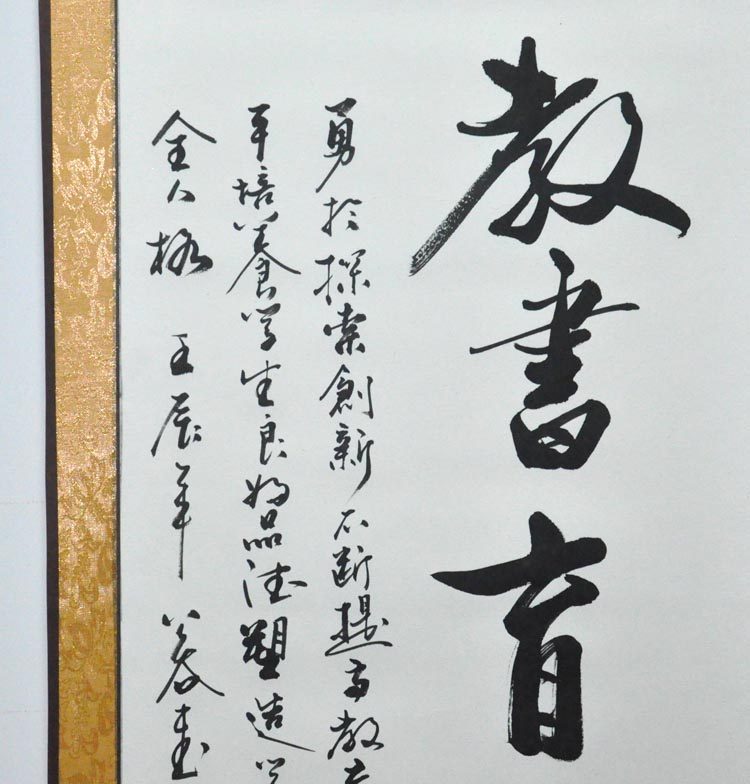 教書育
勇於探索創新不断提高教
平培養学生良好品德塑造学
全人格 壬辰年 暮春